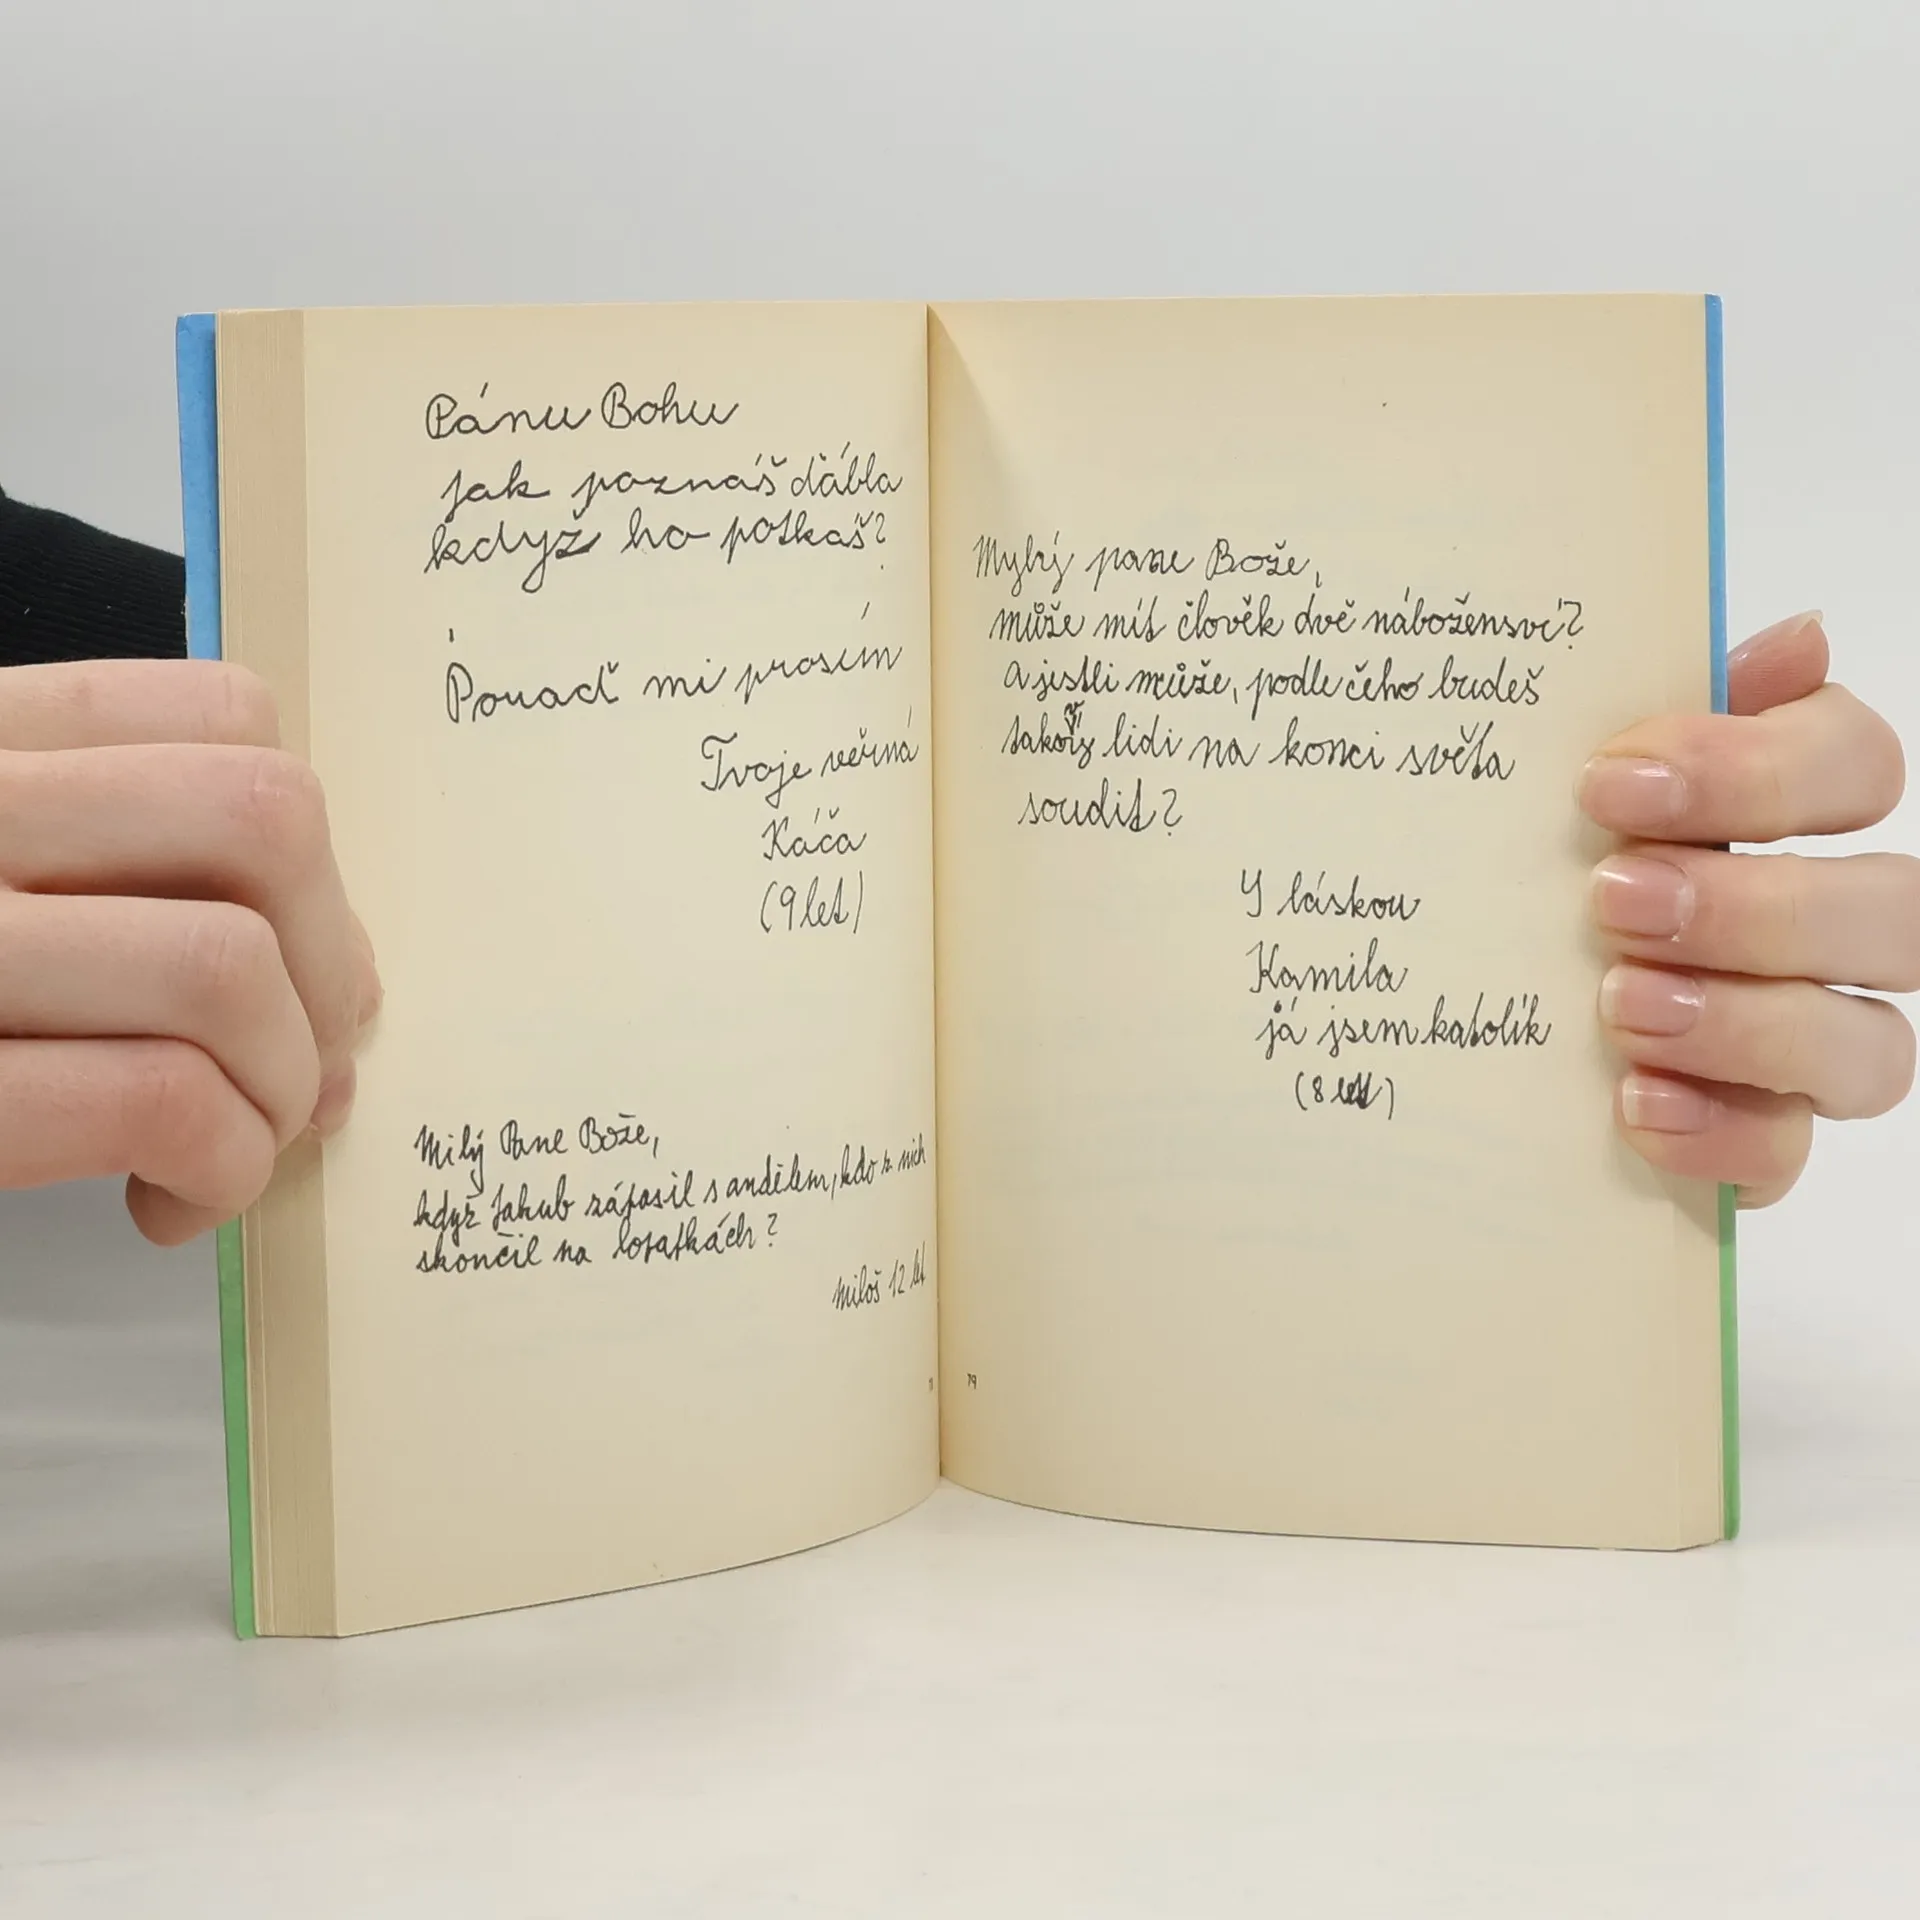 Pánu Bohu
jak poznáš ďábla
když ho potkáš?
Poraď mi prosím
Tvoje věrná
Káča
(9 let)
Milý Pane Bože,
když Jakub zápasil s andělem, kdo z nich
skončil na lopatkách?
Miloš 12 let
Mylý pane Bože,
může mít člověk dvě nábožensví?
A jestli může, podle čeho budeš
lidi na konci světa
soudit?
S láskou
Kamila
já jsem katolík
(8 let)
79